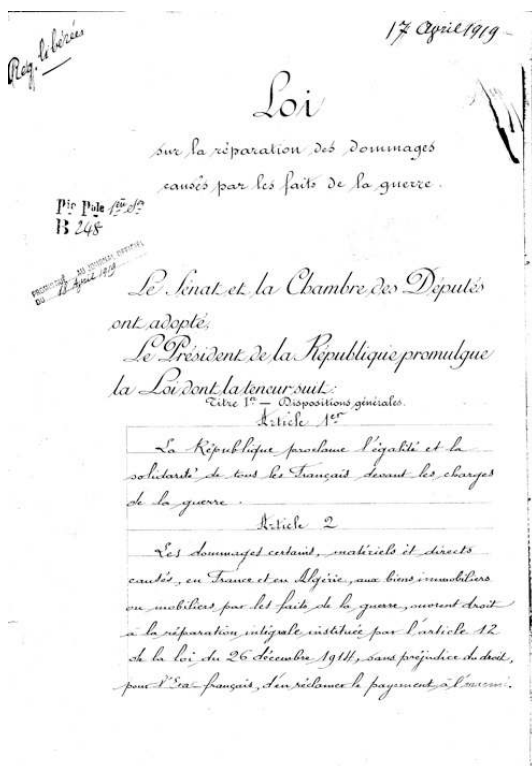 17 April 1919
Reg. libérées
Loi
sur la réparation des dommages
causés par les faits de la guerre.
B 248
AU JOURNAL OFFICIEL
DU 18 Avril 1919
Le Sénat et la Chambre des Députés
ont adopté,
Le Président de la République promulgue
la Loi dont la teneur suit:
Titre Ier — Dispositions générales.
Article 1er
La République proclame l'égalité et la
solidarité de tous les Français devant les charges
de la guerre.
Article 2
Les dommages certains, matériels et directs
causés, en France et en Algérie, aux biens immobiliers
ou mobiliers par les faits de la guerre, ouvrent droit
à la réparation intégrale instituée par l'article 12
de la loi du 26 décembre 1914, sans préjudice du droit,
pour l'Etat français, d'en réclamer le payement à l'ennemi.